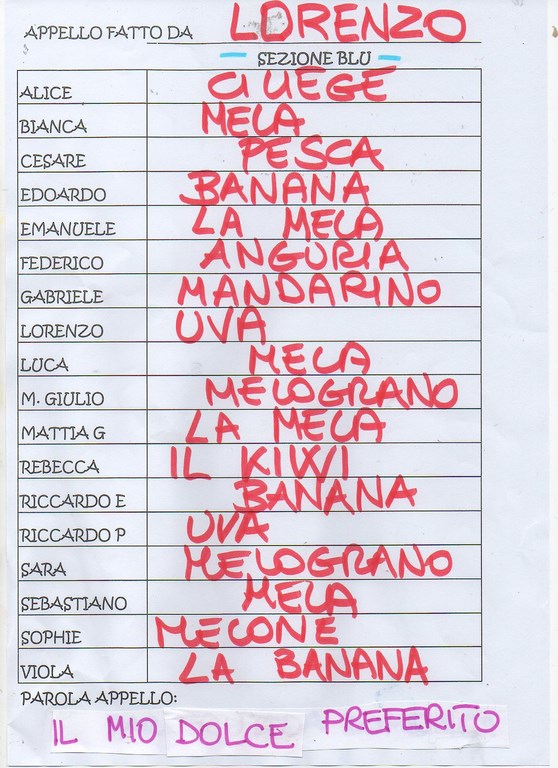 APPELLO FATTO DA LORENZO
SEZIONE BLU
ALICE CILIEGE
BIANCA MELA
CESARE PESCA
EDOARDO BANANA
EMANUELE LA MELA
FEDERICO ANGURIA
GABRIELE MANDARINO
LORENZO UVA
LUCA MELA
M. GIULIO MELOGRANO
MATTIA G LA MELA
REBECCA IL KIWI
RICCARDO E BANANA
RICCARDO P UVA
SARA MELOGRANO
SEBASTIANO MELA
SOPHIE MELONE
VIOLA LA BANANA
PAROLA APPELLO:
IL MIO DOLCE PREFERITO